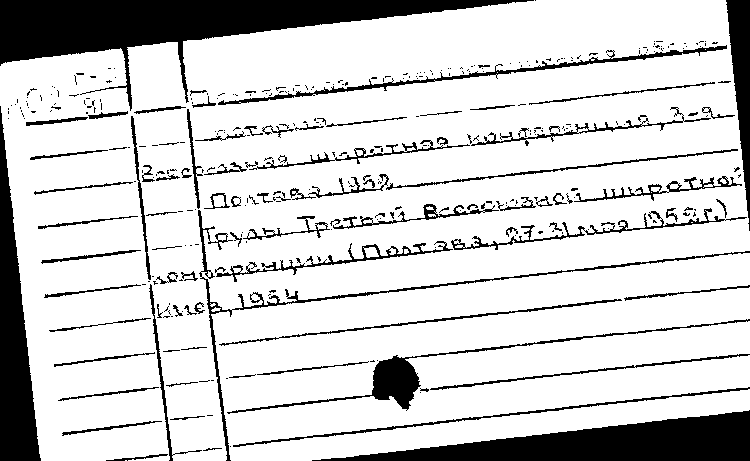 Полтавская гравиметрическая обсер-
ватория.
Всесоюзная широтная конференция, 3-я.
Полтава. 1952
Труды Третьей Всесоюзной широтной
конференции. (Полтава, 27-31 мая 1952 г.)
Киев, 1954